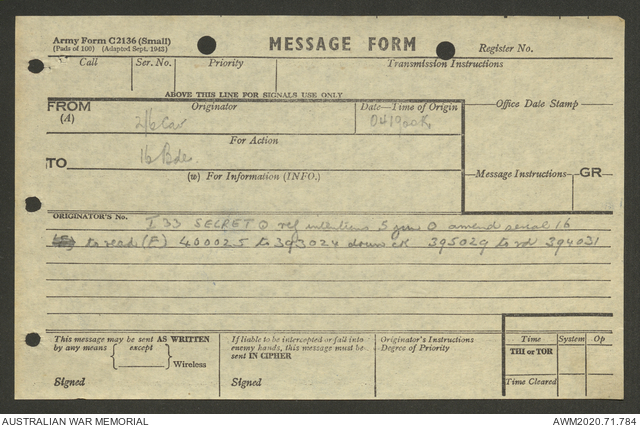 Army Form C2136 (Small)
(Pads of 100) (Adapted Sept. 1943)
MESSAGE FORM
Register No.
Call
Ser. No.
Priority
Transmission Instructions
ABOVE THIS LINE FOR SIGNALS USE ONLY
FROM
(A)
Originator
Date—Time of Origin
Office Date Stamp
2/6 Cav
041900K
For Action
TO
16 Bde.
(w) For Information (INFO.)
Message Instructions
GR
ORIGINATOR'S No.
I 33 SECRET ref intentions 5 O amend serial 16
to read (E) 400025 to 393024 down ck 395029 to rd 394031
This message may be sent AS WRITTEN
by any means except
Wireless
Signed
If liable to be intercepted or fall into
enemy hands, this message must be
sent IN CIPHER
Signed
Originator's Instructions
Degree of Priority
Time
System
Op
THI or TOR
Time Cleared
AUSTRALIAN WAR MEMORIAL
AWM2020.71.784